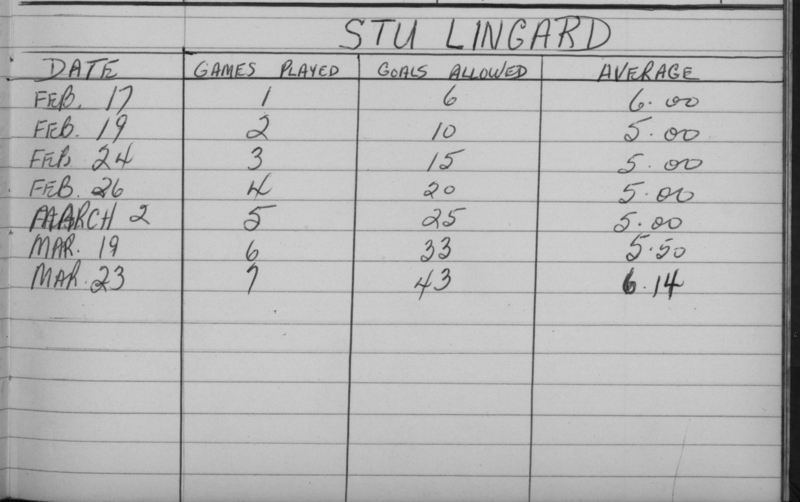 STU LINGARD
DATE GAMES PLAYED GOALS ALLOWED AVERAGE
FEB. 17 1 6 6.00
FEB. 19 2 10 5.00
FEB 24 3 15 5.00
FEB. 26 4 20 5.00
MARCH 2 5 25 5.00
MAR. 19 6 33 5.50
MAR. 23 7 43 6.14